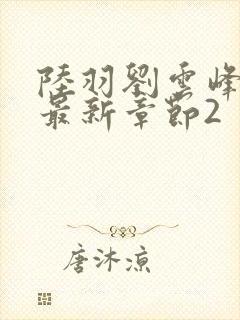 陸羽劉雲峰
最新章節2
唐沐涼